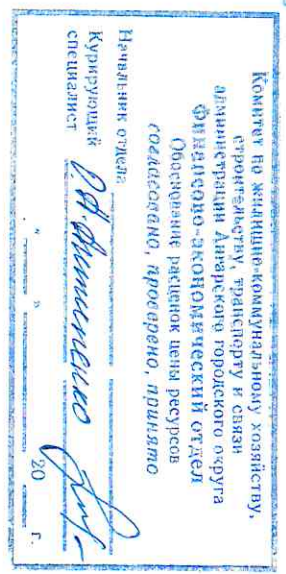 Комитет по жилищно-коммунальному хозяйству,
строительству, транспорту и связи
администрации Ангарского городского округа
Финансово-экономический отдел
Обоснование расценок цены ресурсов
согласовано, проверено, принято
Начальник отдела
Курирующий
специалист
" " 20 г.